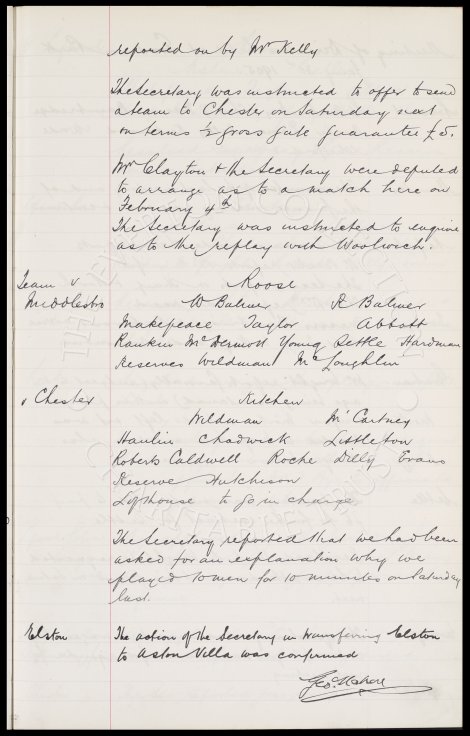 reported on by Mr Kelly
The Secretary was instructed to offer to send
a team to Chester on Saturday next
on terms ½ gross gate guarantee £5.
Mr Clayton & the Secretary were deputed
to arrange as to a match here on
February 4th
The Secretary was instructed to enquire
as to the replay with Woolwich.
Team v Roose
Middlesbro W Balmer R Balmer
Makepeace Taylor Abbott
Rankin McDermott Young Settle Hardman
Reserves Wildman McLoughlin
v Chester Kitchen
Wildman McCartney
Hanlin Chadwick Littleton
Roberts Caldwell Roche Dilly Evans
Reserve Hutchison
Lofthouse to go in charge
The Secretary reported that we had been
asked for an explanation why we
played 10 men for 10 minutes on Saturday
last.
Elston The action of the Secretary in transferring Elston
to Aston Villa was confirmed
Geo. Mahon